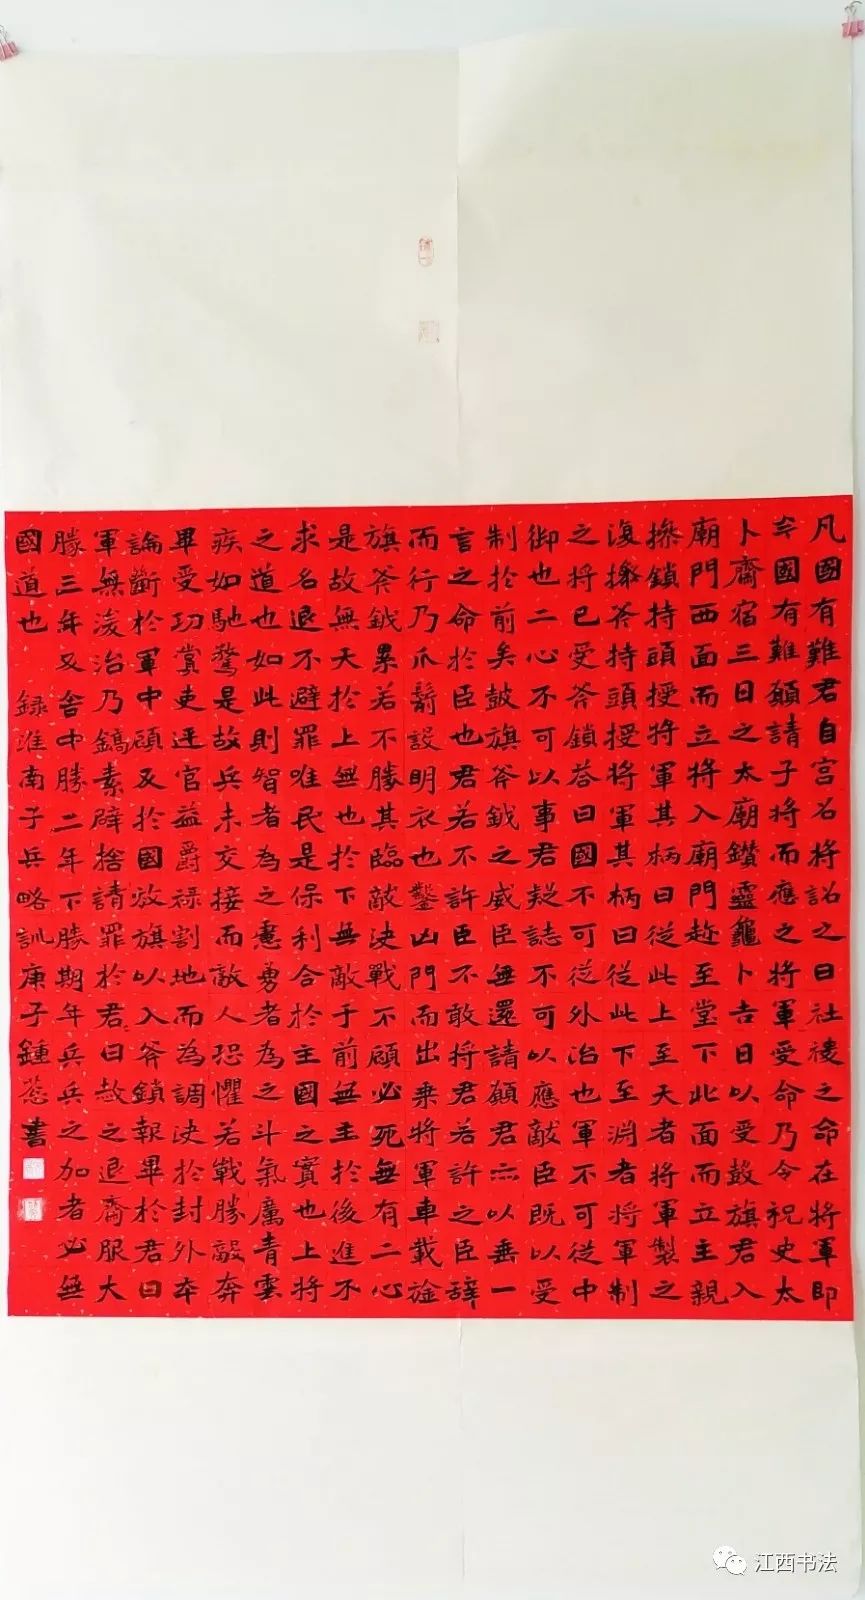 凡國有難君自宫名將詔之曰社稷之命在將軍即
今國有難願請子將而應之將軍受命乃令祝史太
卜齋宿三日之太廟鑽靈龜卜吉日以受鼓旗君入
廟門西面而立將入廟門趂至堂下北面而立主親
操鎖持頭授將軍其柄曰從此上至天者將軍製之
復操斧持頭授將軍其柄曰從此下至淵者將軍制
之將已受斧鎖荅曰國不可從外治也軍不可從中
御也二心不可以事君疑誌不可以應敵臣既以受
制於前矣鼓旗斧鉞之威臣無還請願君亦以垂一
言之命於臣也君若不許臣不敢將君若許之臣辭
而行乃爪鬋設明衣也鑿凶門而出乘將軍車載旍
旗斧鉞累若不勝其臨敵决戰不顧必死無有二心
是故無天於上無也於下無敵于前無主於後進不
求名退不避罪唯民是保利合於主國之實也上將
之道也如此則智者為之慮勇者為之斗氣厲青雲
疾如馳騖是故兵未交接而敵人恐懼若戰勝敵奔
畢受功賞吏迁官益爵禄割地而為調决於封外卒
論斷於軍中顧反於國放旗以入斧鎖報畢於君曰
軍無後治乃鎬素辟捨請罪於君君曰赦之退齋服大
勝三年反舍中勝二年下勝期年兵兵之加者必無
國道也 録淮南子兵略訓庚子鍾莶書
江西书法